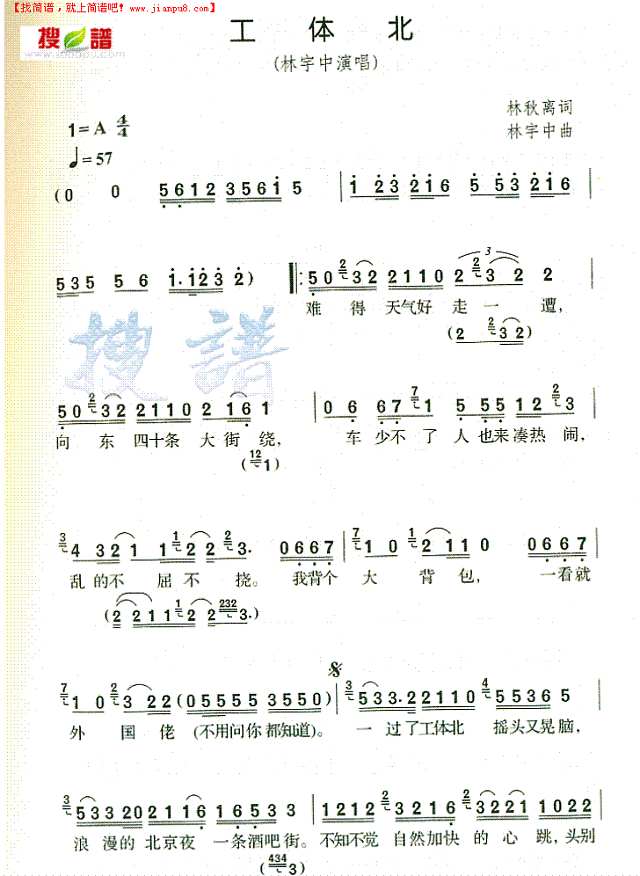 【找简谱，就上简谱吧！www.jianpu8.com】
搜谱
www.sooopu.com
工体北
(林宇中演唱)
林秋离词
林宇中曲
1=A 4/4
♩=57
(0 0 5612 3561 5 | 1 23 216 5 53 216 |
535 56 1·123 2) ‖: 50 2 32 2110 2 2 3 2 2 |
难 得 天气好 走 一 遭，
(2 2 32)
搜谱
50 2 32 2110 2 16 1 | 0 6 67 7 1 5 55 12 2 3 |
向 东 四十条 大 街 绕， 车 少不 了 人 也来 凑热 闹，
(12 1)
3 4 32 1 1 1 2 2 2 3· 0667 | 1 0 2 211 0 0667 |
乱 的不 屈 不 挠。 我背个 大 背 包， 一看就
(2 211 1 2 2 232 3·)
7 1 0 2 3 22 (05555 53550) | 3 533·22110 4 55365 |
外 国 佬 (不用问你都知道)。 一 过了工体北 摇头又晃脑，
3 53320 2216 16533 | 1212 2 3221 1022 |
浪 漫的 北京夜 一条酒吧街。 不知不觉 自然加快 的 心 跳，头别
(434 3)